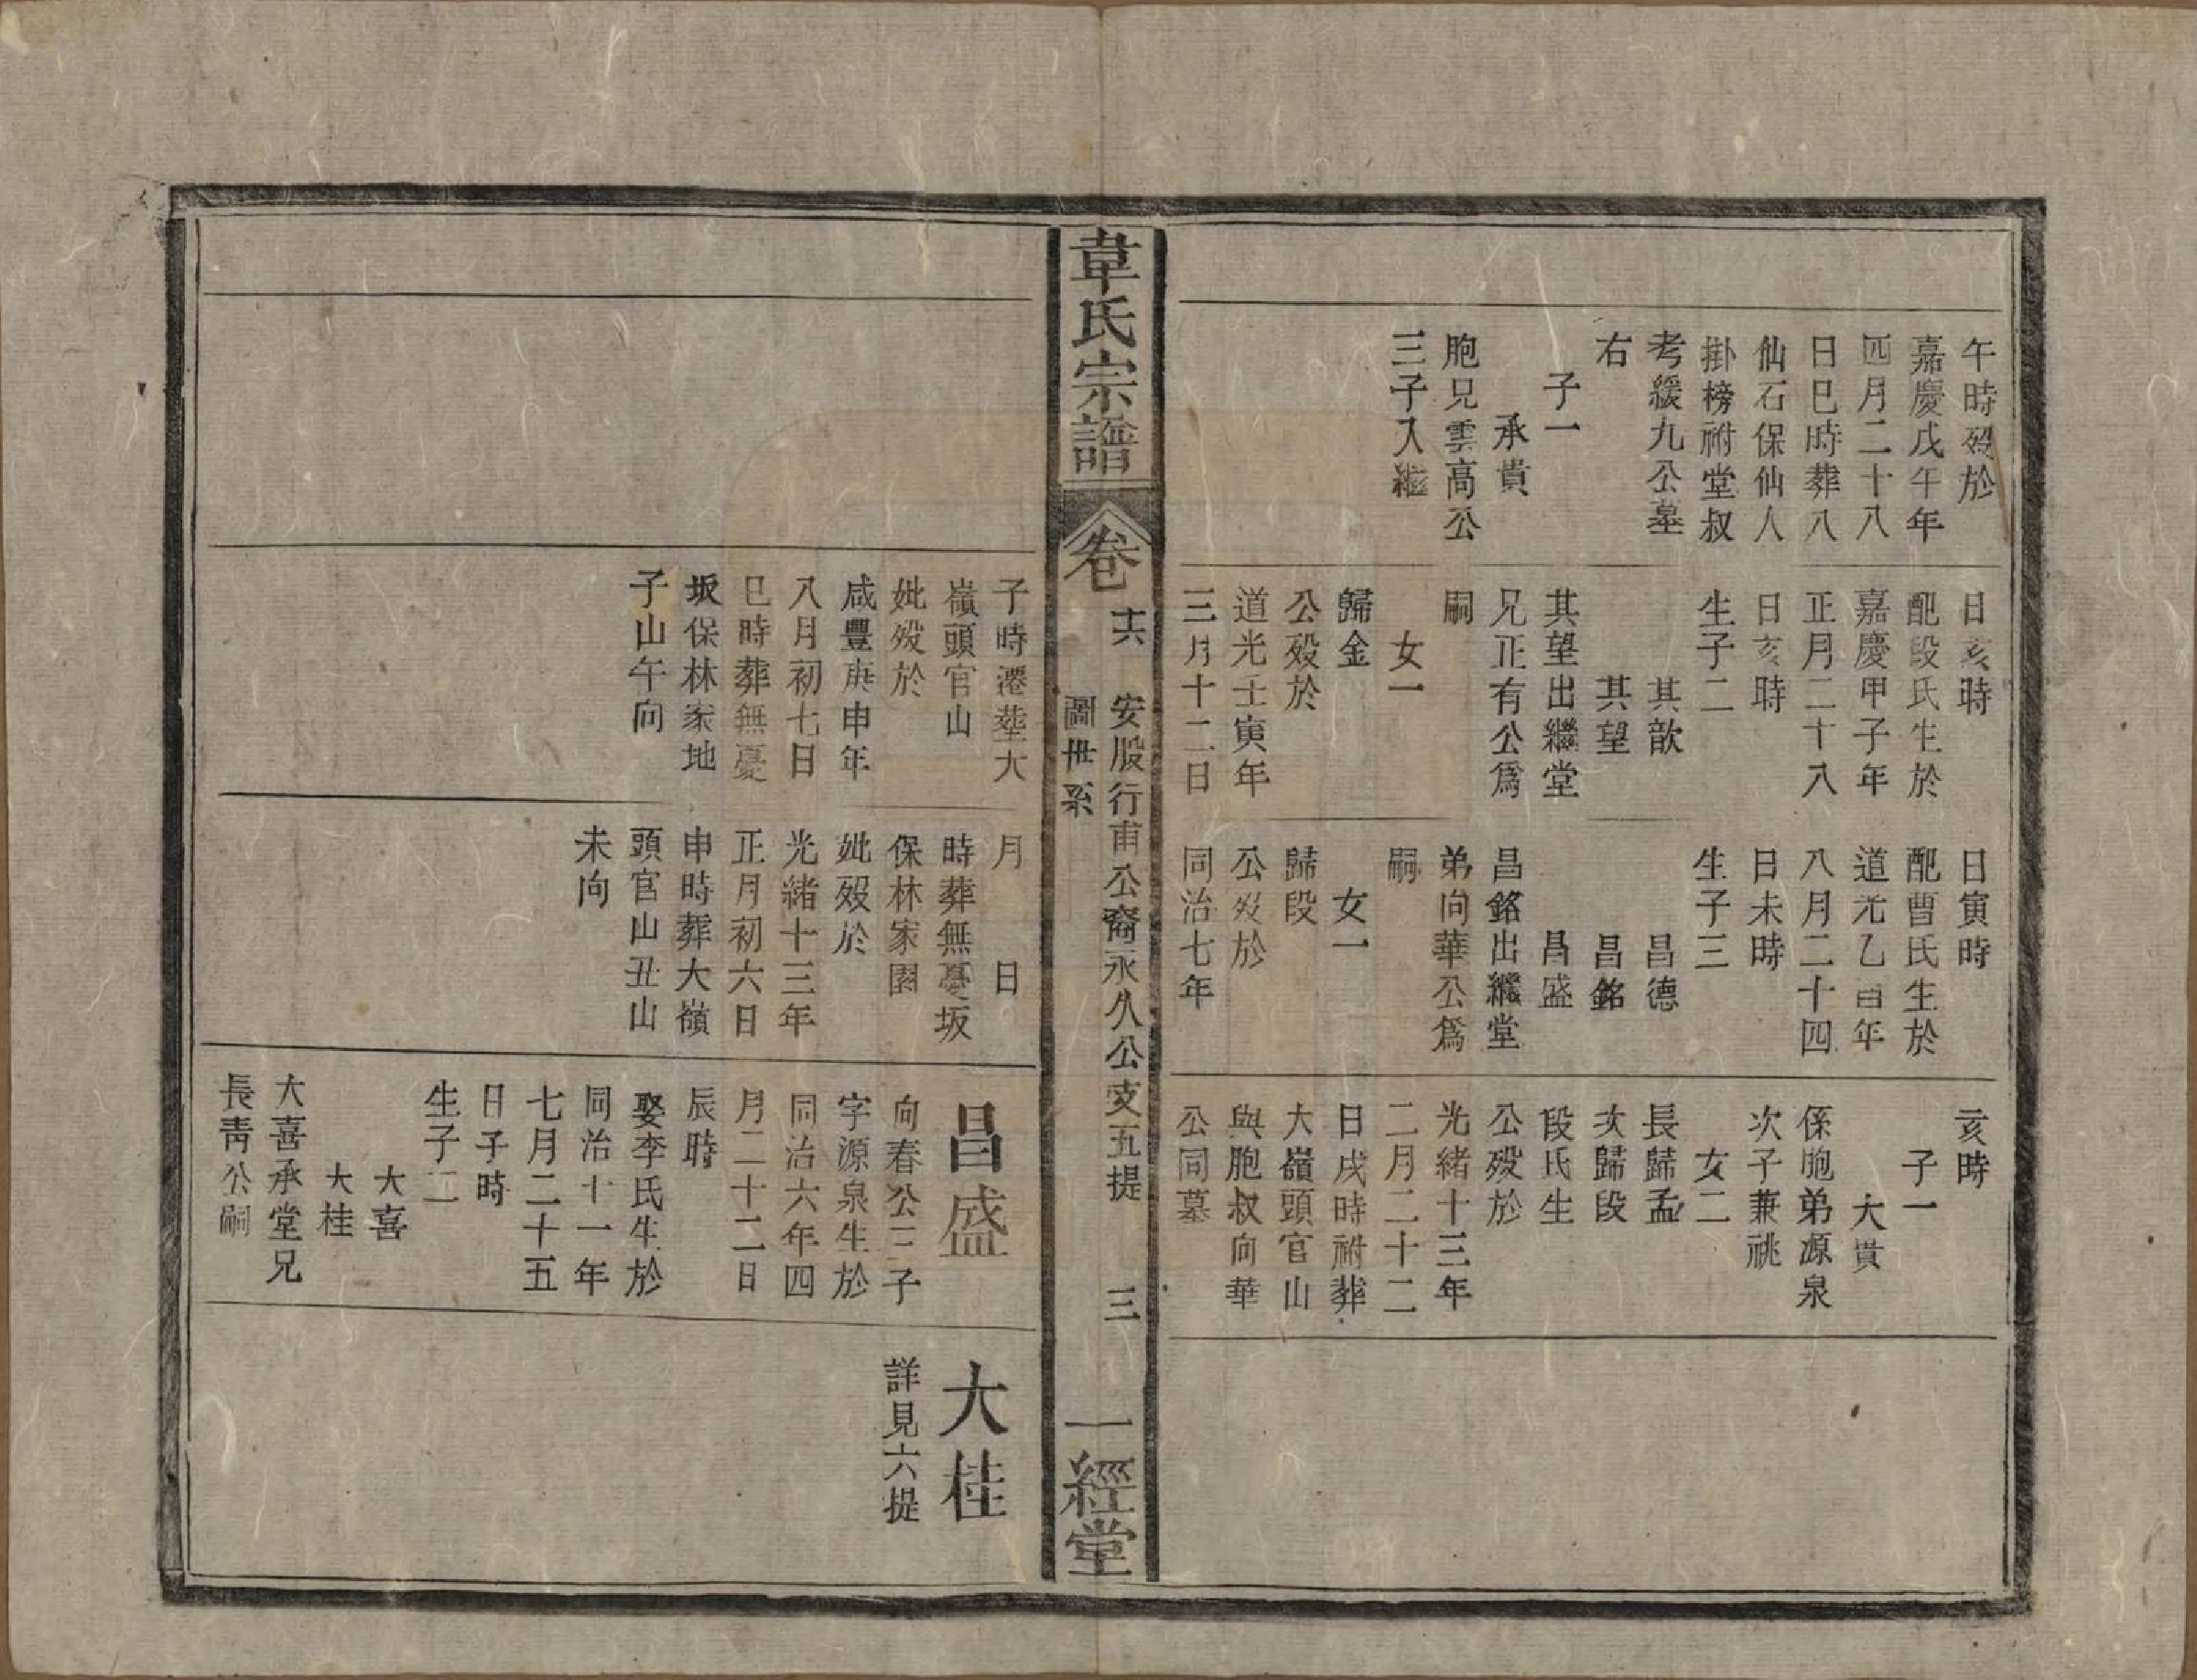 午時歿於
嘉慶戊午年
四月二十八
日巳時葬八
仙石保仙人
掛榜祔堂叔
考緩九公墓
右
子一
承貴
胞兄雲高公
三子入繼
日亥時
配段氏生於
嘉慶甲子年
正月二十八
日亥時
生子二
其歆
其望
其望出繼堂
兄正有公爲
嗣
女一
歸金
公歿於
道光壬寅年
三月十二日
日寅時
配曹氏生於
道光乙酉年
八月二十四
日未時
生子三
昌德
昌銘
昌盛
昌銘出繼堂
弟向華公爲
嗣
女一
歸段
公歿於
同治七年
亥時
子一
大貴
係胞弟源泉
次子兼祧
女二
長歸孟
次歸段
段氏生
公歿於
光緒十三年
二月二十二
日戌時祔葬
大嶺頭官山
與胞叔向華
公同墓
韋氏宗譜
卷
十六
安股行甫公裔永久公支五提
圖世系
三
一經堂
子時遷塟大
嶺頭官山
妣歿於
咸豐庚申年
八月初七日
巳時葬無憂
坂保林家地
子山午向
月 日
時葬無憂坂
保林家園
妣歿於
光緒十三年
正月初六日
申時葬大嶺
頭官山丑山
未向
昌盛
向春公三子
字源泉生於
同治六年四
月二十二日
辰時
娶李氏生於
同治十一年
七月二十五
日子時
生子二
大喜
大桂
大喜承堂兄
長靑公嗣
大桂
詳見六提